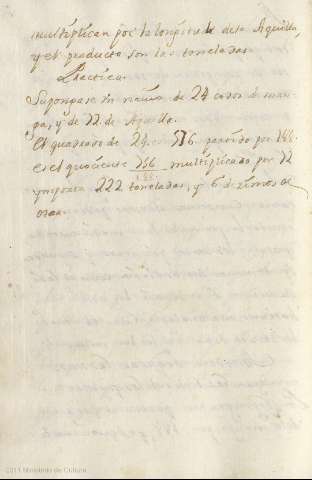 multiplican por la longitud de la Aquilla,
y el producto son las toneladas.
Practica.
Supongase un navio de 24 codos de man-
ga, y de 72 de Aquilla.
el quadrado de 24. es 576. partido por
es el quociente multiplicado por 72
ymporta 222 toneladas, y 6 dezimos de
otra.
©2011 Ministerio de Cultura